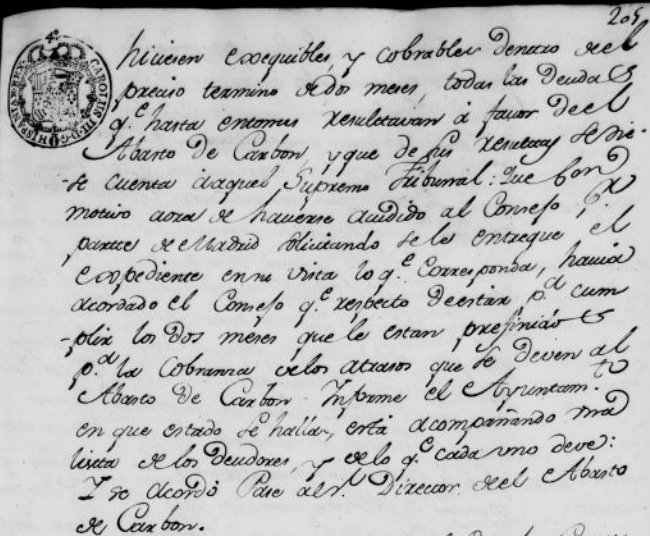 205
hiciesen exequibles, y cobrables dentro del
preciso termino de dos meses, todas las Deudas
q.e hasta entonces resultavan à favor de el
Abasto de Carbon, y que de sus resultas se die-
-se cuenta à aquel Supremo Tribunal: Que con
motivo aora de haverse acudido al Consejo p.r
partte de Madrid solicitando se le entregue el
expediente en su vista lo q.e corresponda, havia
acordado el Consejo q.e respecto de estar p.a cum
-plir los dos meses que le estan prefinidos
p.a la Cobranza de los atrasos que se deven al
Abasto de Carbon. Informe el Ayuntam.to
en que estado se halla, esta acompañando una
lista de los deudores, y de lo q.e cada uno deve:
Y se acordó Pase al S.r Director del Abasto
de Carbon.